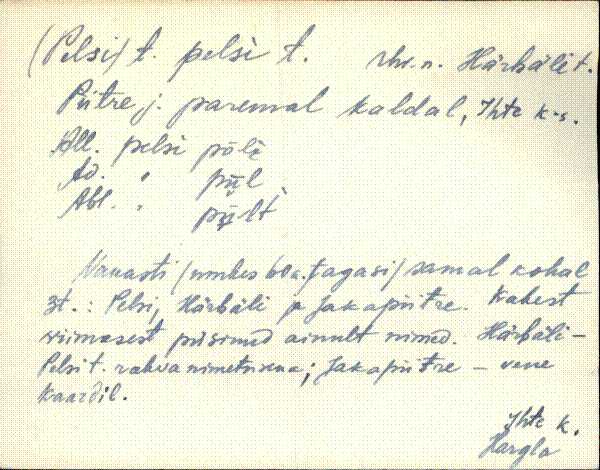 (Pelsi) t. pelsi t. rhv.n. Härbäli t.
Piitre j. paremal kaldal, Ihte k-s.
All. pelsi pōlė
Ad. " pi̮i̮l
Abl. " pi̮i̮lt
Vanasti (umbes 60 a. tagasi) samal kohal
3 t.: Pelsi, Härbäli ja Jakapiitre. Kahest
viimasest püsinud ainult nimed. Härbäli –
Pelsi t. rahvanimetusena; Jakapiitre – vene
kaardil.
Ihte k.
Hargla